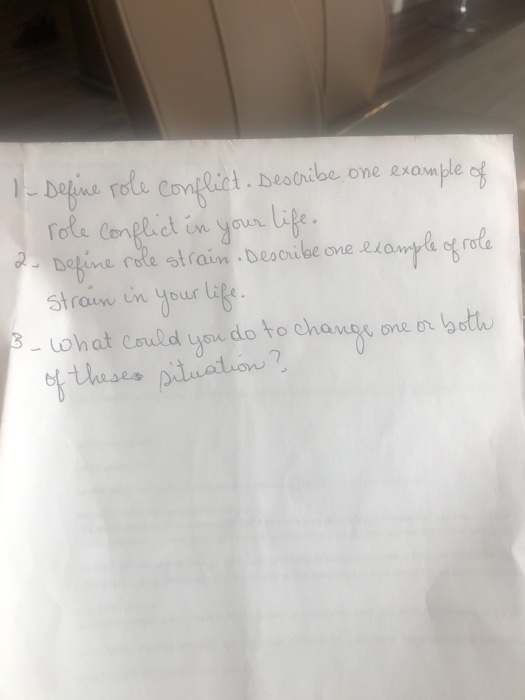 1- Define role conflict. Describe one example of
role conflict in your life.
2- Define role strain. Describe one example of role
strain in your life.
3- What could you do to change one or both
of these situation?